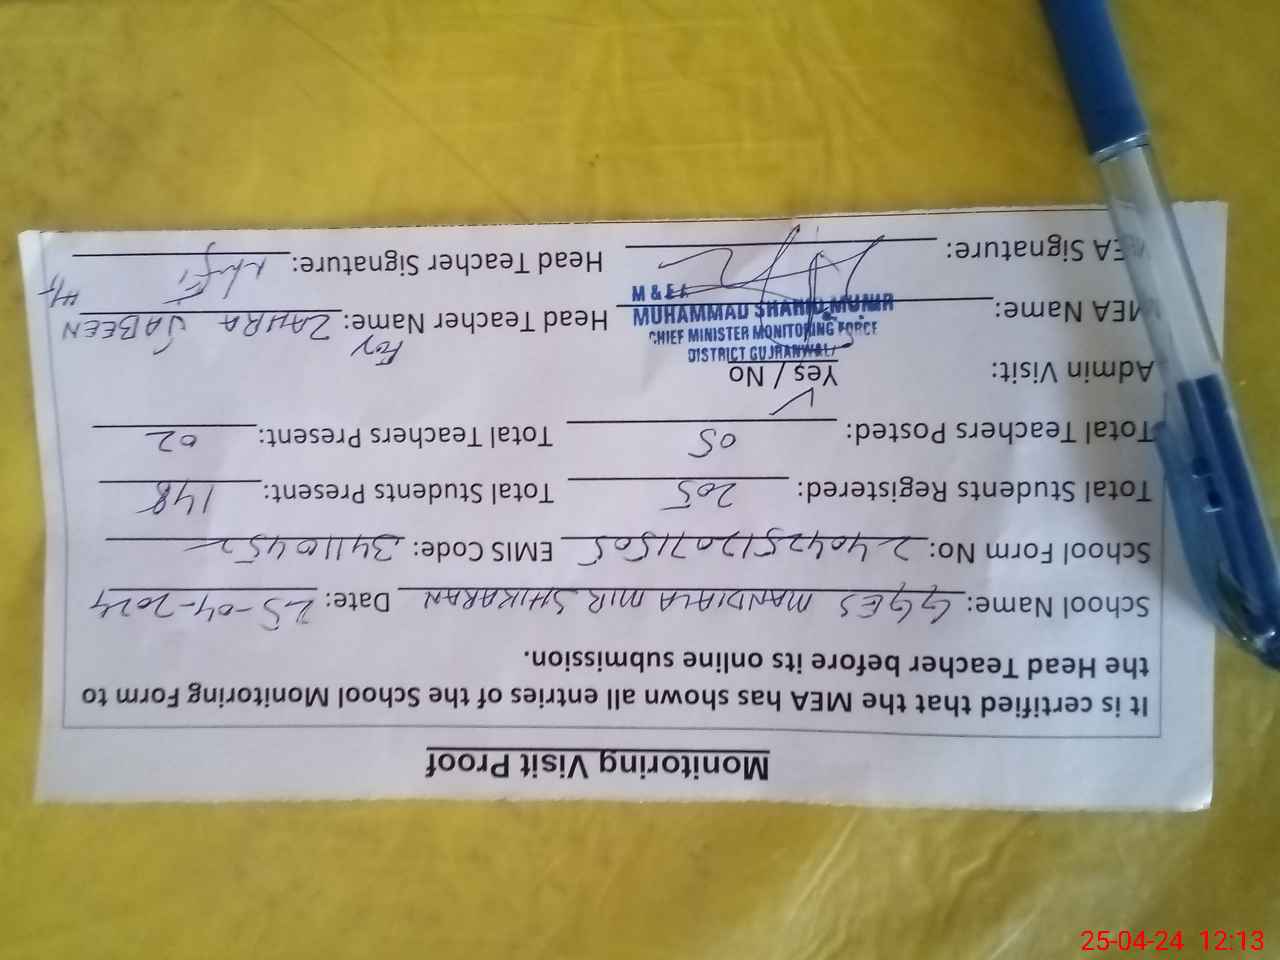 Monitoring Visit Proof
It is certified that the MEA has shown all entries of the School Monitoring Form to
the Head Teacher before its online submission.
School Name: GGES MANDIALA MIR SHIKARAN Date: 25-04-2024
School Form No: 24042517071505 EMIS Code: 34110452
Total Students Registered: 205 Total Students Present: 148
Total Teachers Posted: 05 Total Teachers Present: 02
Admin Visit: Yes / No
MEA Name: Head Teacher Name: ZAHRA JABEEN
For
MEA Signature: Head Teacher Signature:
M & EA
MUHAMMAD SHAHID MUNIR
CHIEF MINISTER MONITORING FORCE
DISTRICT GUJRANWALA
25-04-24 12:13